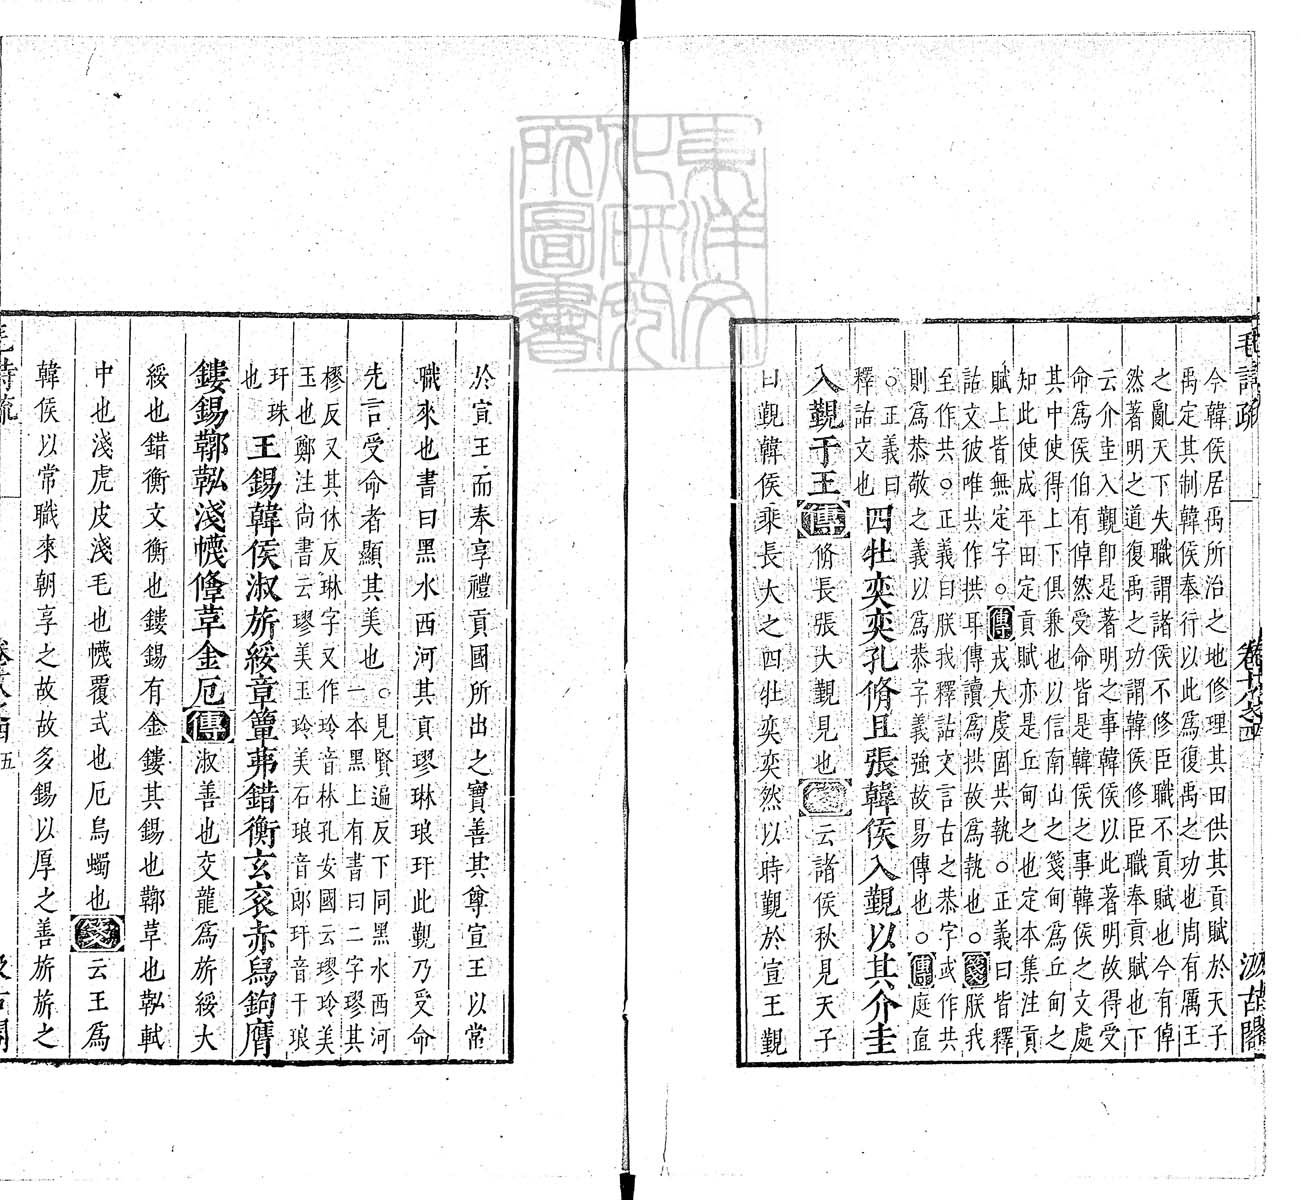 毛詩疏
卷十八之四
汲古閣
今韓侯居禹所治之地修理其田供其貢賦於天子
禹定其制韓侯奉行以此爲復禹之功也周有厲王
之亂天下失職謂諸侯不修臣職不貢賦也今有倬
然著明之道復禹之功謂韓侯修臣職奉貢賦也下
云介圭入覲卽是著明之事韓侯以此著明故得受
命爲侯伯有倬然受命皆是韓侯之事韓侯之文處
其中使得上下俱兼也以信南山之箋甸爲丘甸之
知此使成平田定貢賦亦是丘甸之也定本集注貢
賦上皆無定字○傳戎大虔固共執○正義曰皆釋
詁文彼唯共作拱耳傳讀爲拱故爲執也○箋朕我
至作共○正義曰朕我釋詁文言古之恭字或作共
則爲恭敬之義以爲恭字義強故易傳也○傳庭直
○正義曰
釋詁文也
四牡奕奕孔脩且張韓侯入覲以其介圭
入覲于王傳脩長張大覲見也箋云諸侯秋見天子
曰覲韓侯乘長大之四牡奕奕然以時覲於宣王覲
於宣王而奉享禮貢國所出之寶善其尊宣王以常
職來也書曰黑水西河其貢璆琳琅玕此覲乃受命
先言受命者顯其美也
○見賢遍反下同黑水西河
一本黑上有書曰二字璆其
樛反又其休反琳字又作玲音林孔安國云璆玲美
玉也鄭注尚書云璆美玉玲美石琅音郎玕音干琅
玕珠
也
王錫韓侯淑旂綏章簟茀錯衡玄衮赤舄鉤膺
鏤錫鞹鞃淺幭鞗革金厄傳淑善也交龍爲旂綏大
綏也錯衡文衡也鏤錫有金鏤其錫也鞹革也鞃軾
中也淺虎皮淺毛也幭覆式也厄烏蠋也箋云王爲
韓侯以常職來朝享之故故多錫以厚之善旂旂之
毛詩疏
五
東洋文化研究所圖書